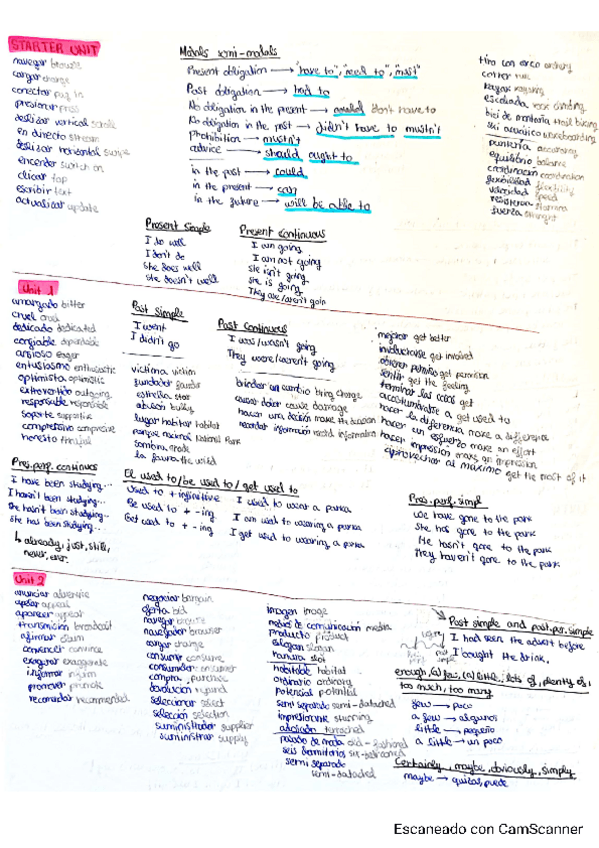 STARTER UNIT
navegar browse
cargar charge
conectar plug in
presionar press
deslizar vertical scroll
en directo stream
deslizar horizontal swipe
encender switch on
clicar tap
escribir text
actualizar update
Modals semi-modals
Present obligation → "have to", "need to", "must"
Past obligation → had to
No obligation in the present → don't have to
No obligation in the past → didn't have to mustn't
Prohibition → mustn't
advice → should ought to
in the past → could
in the present → can
in the future → will be able to
tiro con arco archery
kayak kayaking
escalada rock climbing
bici de montaña trail biking
ski acuático wakeboarding
puntería accuracy
equilibrio balance
coordinación coordination
flexibilidad flexibility
velocidad speed
resistencia stamina
fuerza
Present simple
I do well
I don't do
She does well
She doesn't well
Present continuous
I am going
I am not going
She isn't going
She is going
They are/aren't goin
Unit 1
amargado bitter
cruel cruel
dedicado dedicated
confiable dependable
ansioso eager
entusiasmo enthusiastic
optimista optimistic
extrovertido outgoing
responsable responsible
soporte supportive
comprensivo
honesto
Past simple
I went
I didn't go
victima victim
fundador founder
estrella star
abusón bully
lugar habitat habitat
parque nacional National Park
sombra shade
la fauna the wild
Past continuous
I was/wasn't going
They were/weren't going
brindar un cambio bring change
causar dolor cause damage
hacer una decisión make the decision
recordar información recall information
mejorar get better
involucrarse get involved
obtener permiso get permission
sentir get the feeling
terminar las cosas get
acostumbrarse a get used to
hacer la diferencia make a difference
hacer un esfuerzo make an effort
hacer impresión make an impression
aprovechar al máximo get the most of it
Pres.perf. continuos
I have been studying...
I haven't been studying...
She hasn't been studying...
She has been studying...
↳ already, just, still,
never, ever.
El used to/be used to/get used to
Used to + infinitive I used to want a parka
Be used to + -ing I am used to wearing a parka
Get used to + -ing I get used to wearing a parka
Pres. perf. simpl
We have gone to the park
She has gone to the park
He hasn't gone to the park
They haven't gone to the park
Unit 2
anunciar advertise
apelar appeal
aparecer appear
transmisión broadcast
afirmar claim
convencer convince
exagerar exaggerate
informar inform
promover promote
recomendar recommended
negociar bargain
oferta bid
navegar browse
navegador browser
cargar charge
consumir consume
consumidor consumer
compra purchase
devolución refund
seleccionar select
selección selection
suministrador supplier
suministrar supply
imagen image
medios de comunicación media
producto product
eslogan slogan
ranura slot
habitable habitat
ordinario ordinary
potencial potential
semi separado semi-detached
impresionante stunning
adosado terraced
pasado de moda old-fashioned
seis dormitorios six-bedroomed
semi separado
semi-detached
Past simple and past.per.simple
I had seen the advert before
I bought the drink.
enough, (a) few, (a) little, lots of, plenty of,
too much, too many
few → poco
a few → algunos
little → pequeño
a little → un poco
Certainly, maybe, obviously, simply
maybe → quizás, puede
Escaneado con CamScanner